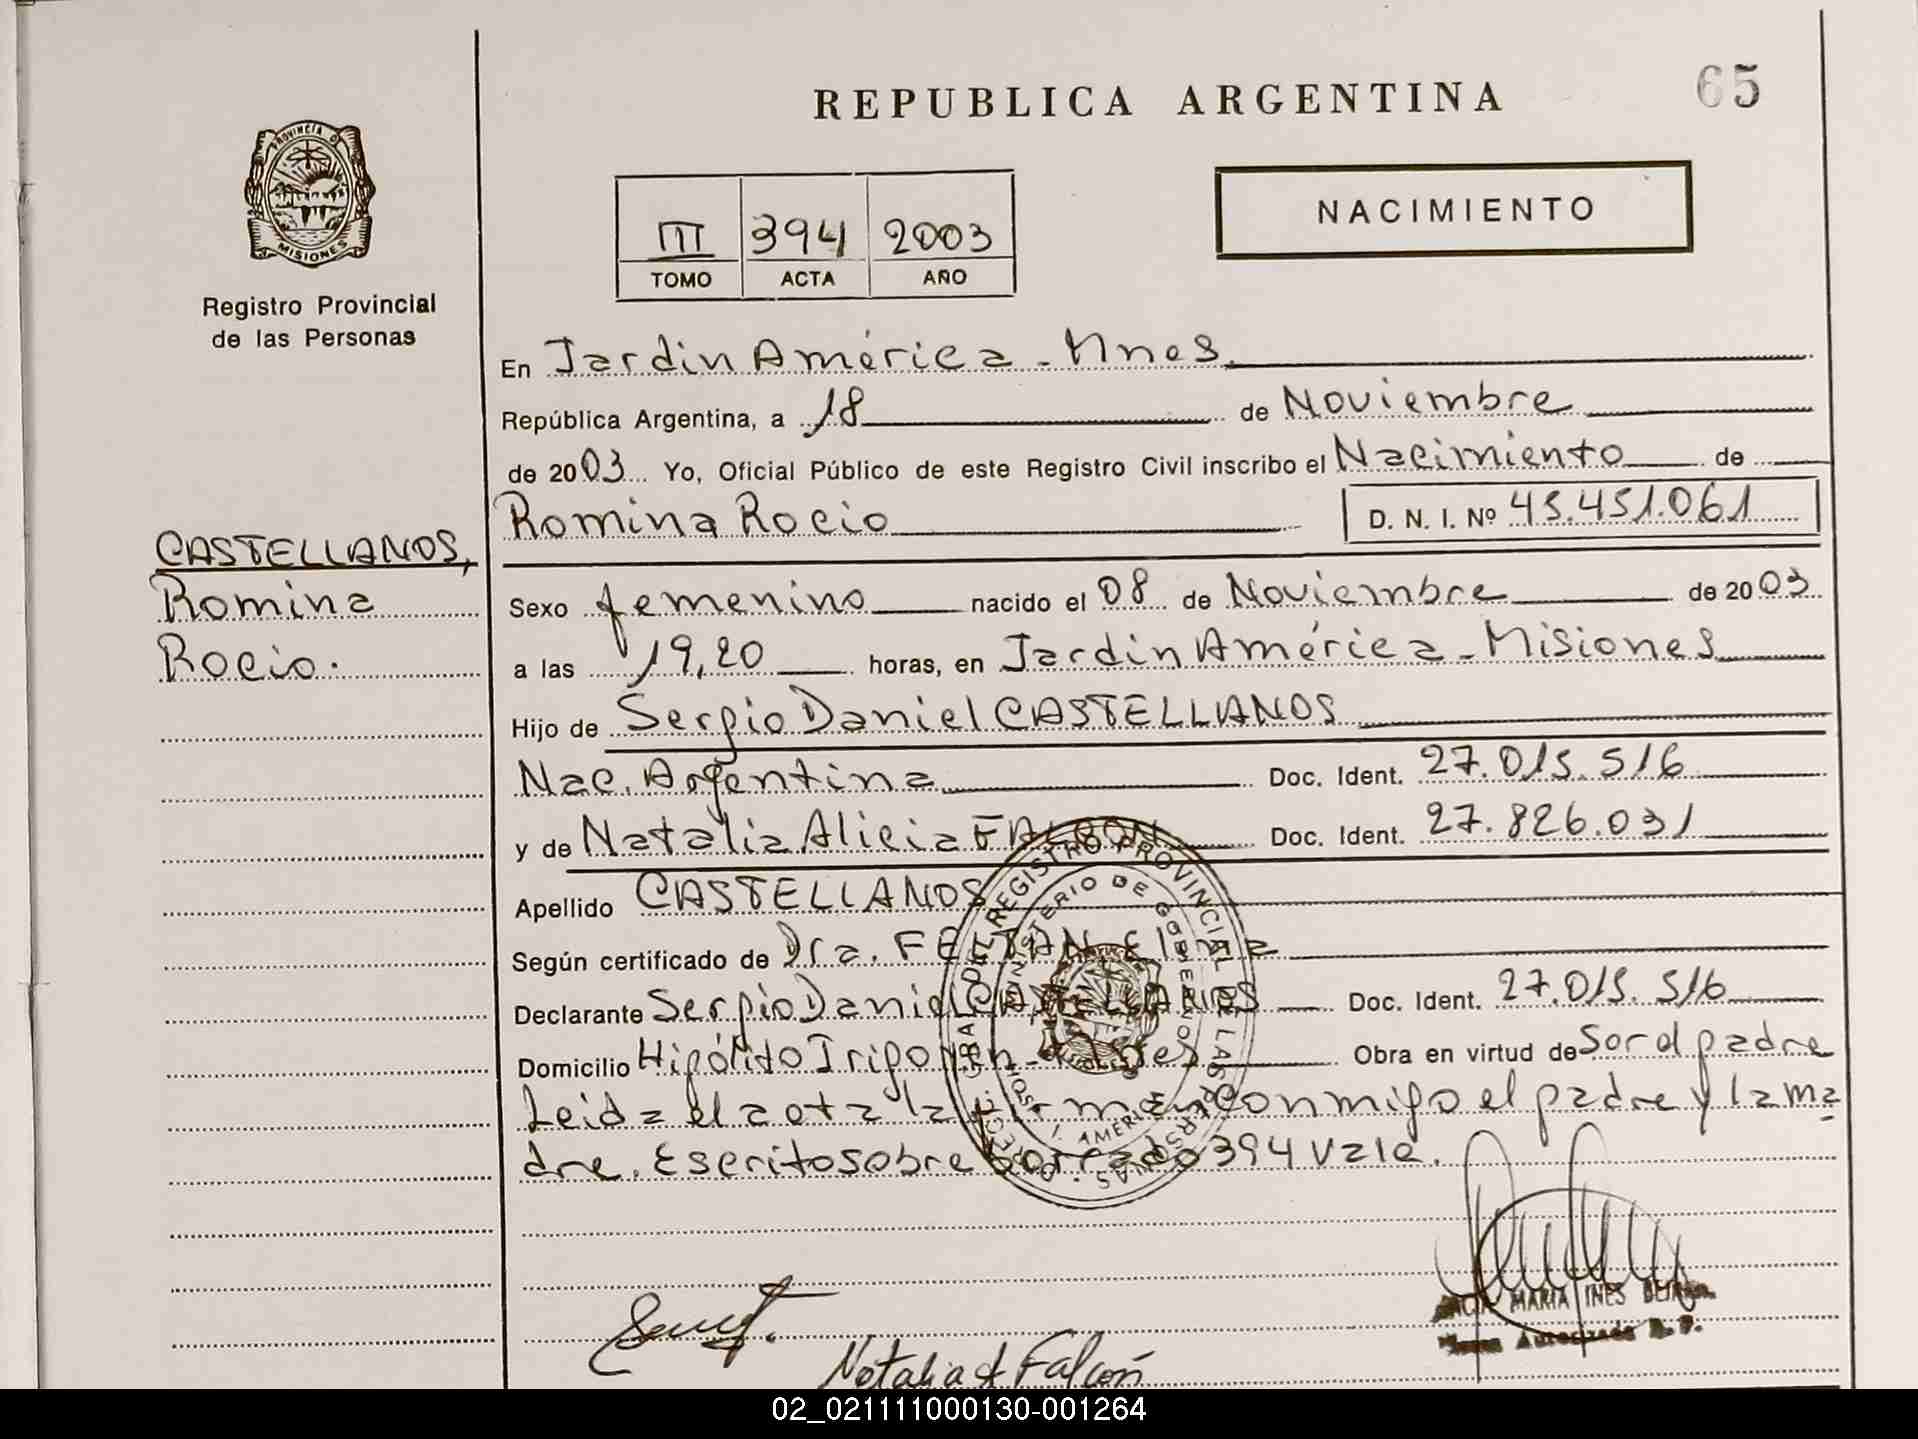 65
REPUBLICA ARGENTINA
PROVINCIA DE
MISIONES
Registro Provincial
de las Personas
NACIMIENTO
III 394 2003
TOMO ACTA AÑO
En Jardin América - Mnes.
República Argentina, a 18 de Noviembre
de 2003 Yo, Oficial Público de este Registro Civil inscribo el Nacimiento de
Romina Rocio D. N. I. Nº 45.451.061
CASTELLANOS,
Romina
Rocio.
Sexo femenino nacido el 08 de Noviembre de 2003
a las 19,20 horas, en Jardin América - Misiones
Hijo de Sergio Daniel CASTELLANOS
Nac. Argentina Doc. Ident. 27.015.516
y de Natalia Alicia FALCON Doc. Ident. 27.826.031
Apellido CASTELLANOS
Según certificado de Dra.
Declarante Sergio Daniel CASTELLANOS Doc. Ident. 27.015.516
Domicilio Hipólito Irigoyen - Mnes Obra en virtud de Ser el padre
Leida el acta la firman conmigo el padre y la ma
dre. Escrito sobre borrado 394 Vale.
REGISTRO PROVINCIAL DE LAS PERSONAS
MINISTERIO DE GOBIERNO
J. AMERICA
MARIA INES
Natalia A Falcón
02_021111000130-001264